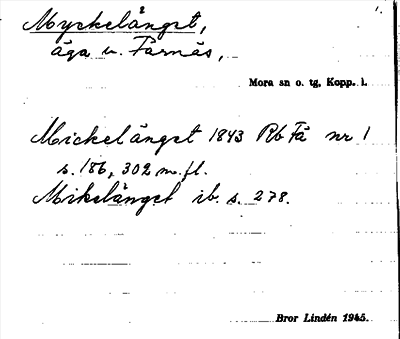 Myckelänget, 1.
äga u. Färnäs,
Mora sn o. tg, Kopp. l.
Mickelänget 1843 Rb Fä nr 1
s. 186, 302 m.fl.
Mikelänget ib. s. 278.
Bror Lindén 1945.